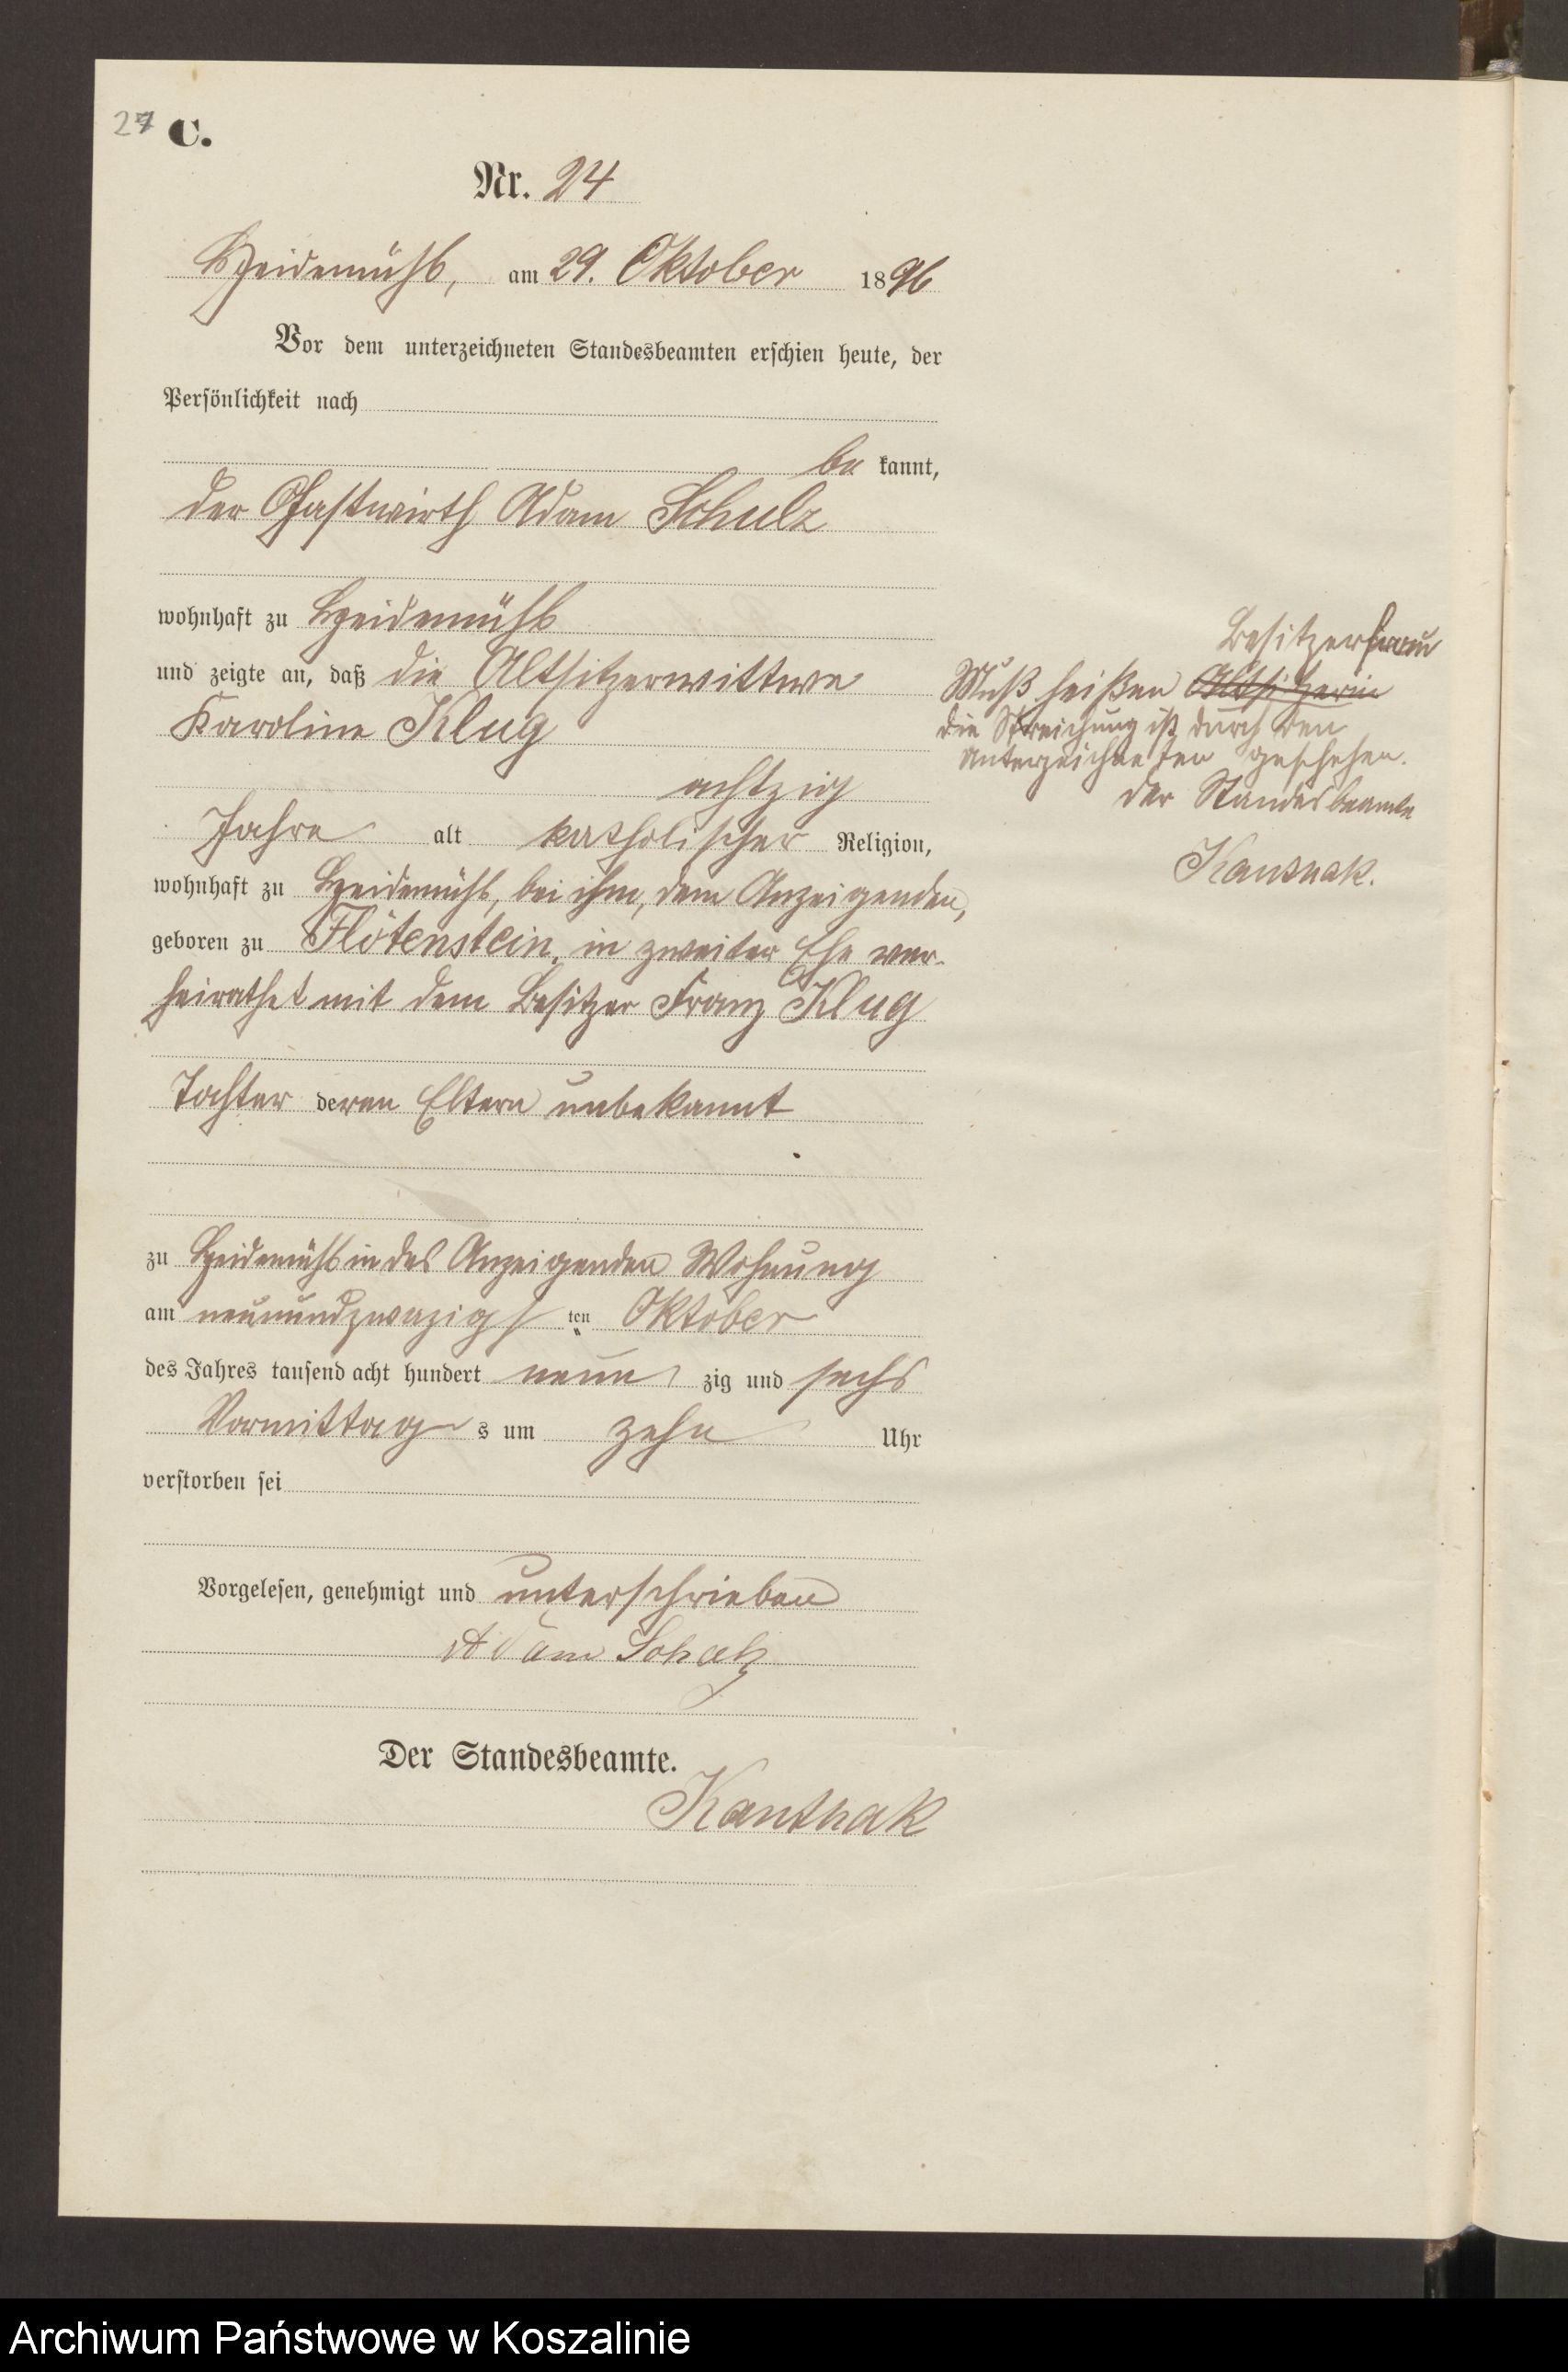 27 C.
Nr. 24
Heidemühl, am 29. Oktober 1896
Vor dem unterzeichneten Standesbeamten erschien heute, der
Persönlichkeit nach
be kannt,
der Gastwirth Adam Schulz
wohnhaft zu Heidemühl
und zeigte an, daß die Altsitzerwittwe
Karoline Klug
achtzig
Jahre alt katholischer Religion,
wohnhaft zu Heidemühl, bei ihm, dem Anzeigenden,
geboren zu Flötenstein, in zweiter Ehe ver-
heirathet mit dem Besitzer Franz Klug
Tochter deren Eltern unbekannt
zu Heidemühl in des Anzeigenden Wohnung
am neunundzwazigsten Oktober
des Jahres tausend acht hundert neun zig und sechs
Vormittag s um zehn Uhr
verstorben sei
Vorgelesen, genehmigt und unterschrieben
Adam Schulz
Der Standesbeamte.
Kanthak
Besitzerfrau
Muß heißen Altsitzerin
die Streichung ist durch den
Unterzeichneten geschehen.
Der Standesbeamte
Kanthak.
Archiwum Państwowe w Koszalinie